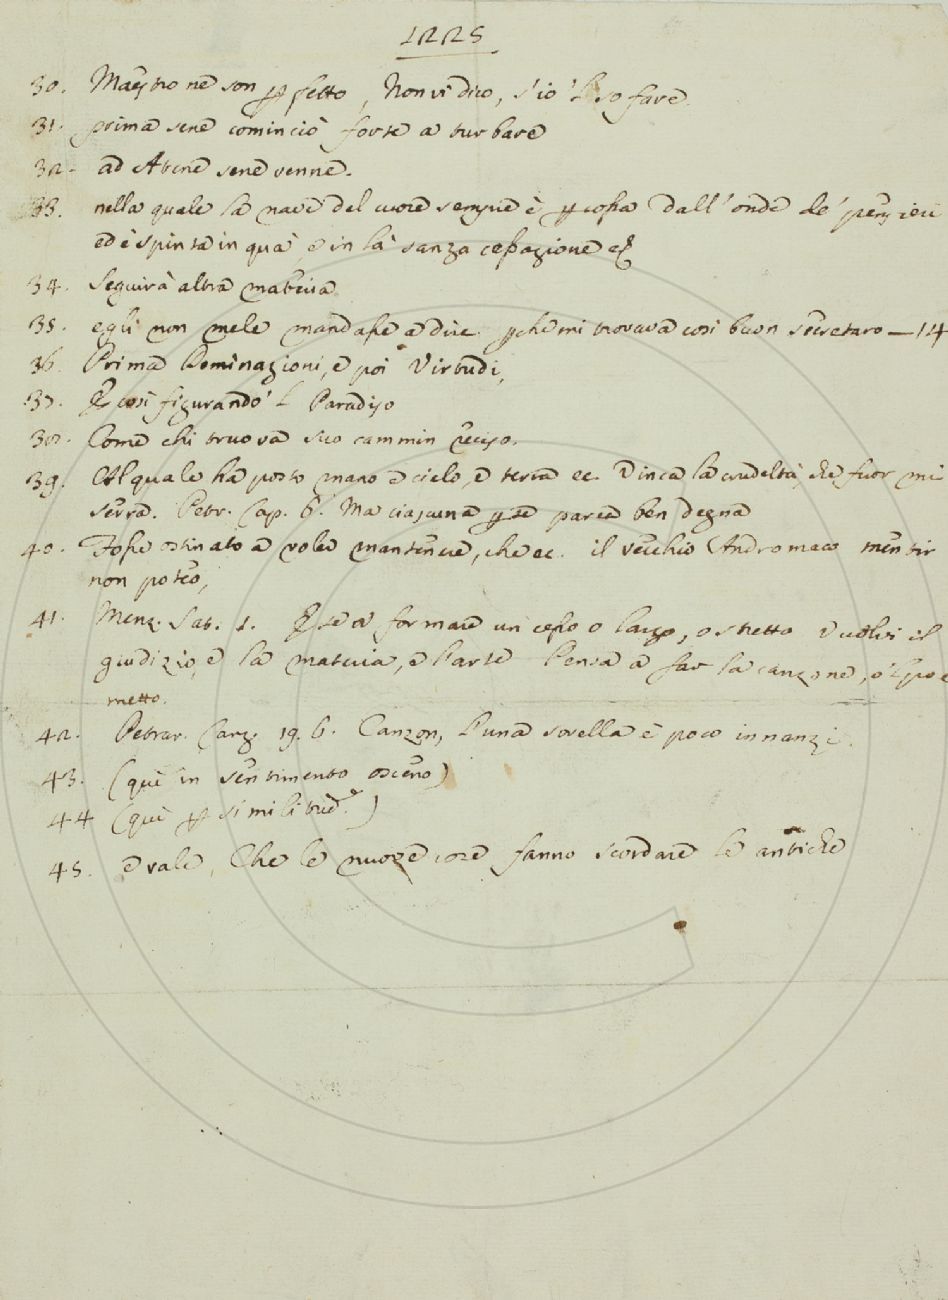 1225
30. Maestro ne son perfetto, Non vi dico, s'io 'l so fare
31. prima sene cominciò forte a turbare
32. ad Atene sene venne.
33. nella quale la nave del cuore sempre è percossa dall'onde de' pensieri
ed è spinta in quà, e in là sanza cessazione ec
34. Seguirà altra materia
35. egli non mele mandasse a dire perche mi trovava cosi buon secretaro — 14
36. Prima Dominazioni, e poi Virtudi,
37. E così figurando 'l Paradiso
38. Come chi truova suo cammin reciso.
39. Al quale ha posto mano e cielo, e terra ec. Vinca la crudeltà, che fuor mi
serra. Petr. Cap. 6. Ma ciascuna per se parea ben degna
40. Fosse ostinato a voler mantenere, che ec. il vecchio Andromaco mentir
non poteo,
41. Menz. Sat. 1. E se a formare un cesso o largo, o stretto Evolvi il
giudizio, e la materia, e l'arte Pensa a far la canzone, o 'l poe
metto.
42. Petrar. Canz. 19. 6. Canzon, l'una sorella è poco innanzi.
43. (quì in sentimento osceno)
44 (quì per similitude.)
45. e vale, Che le nuove cose fanno scordare le antiche